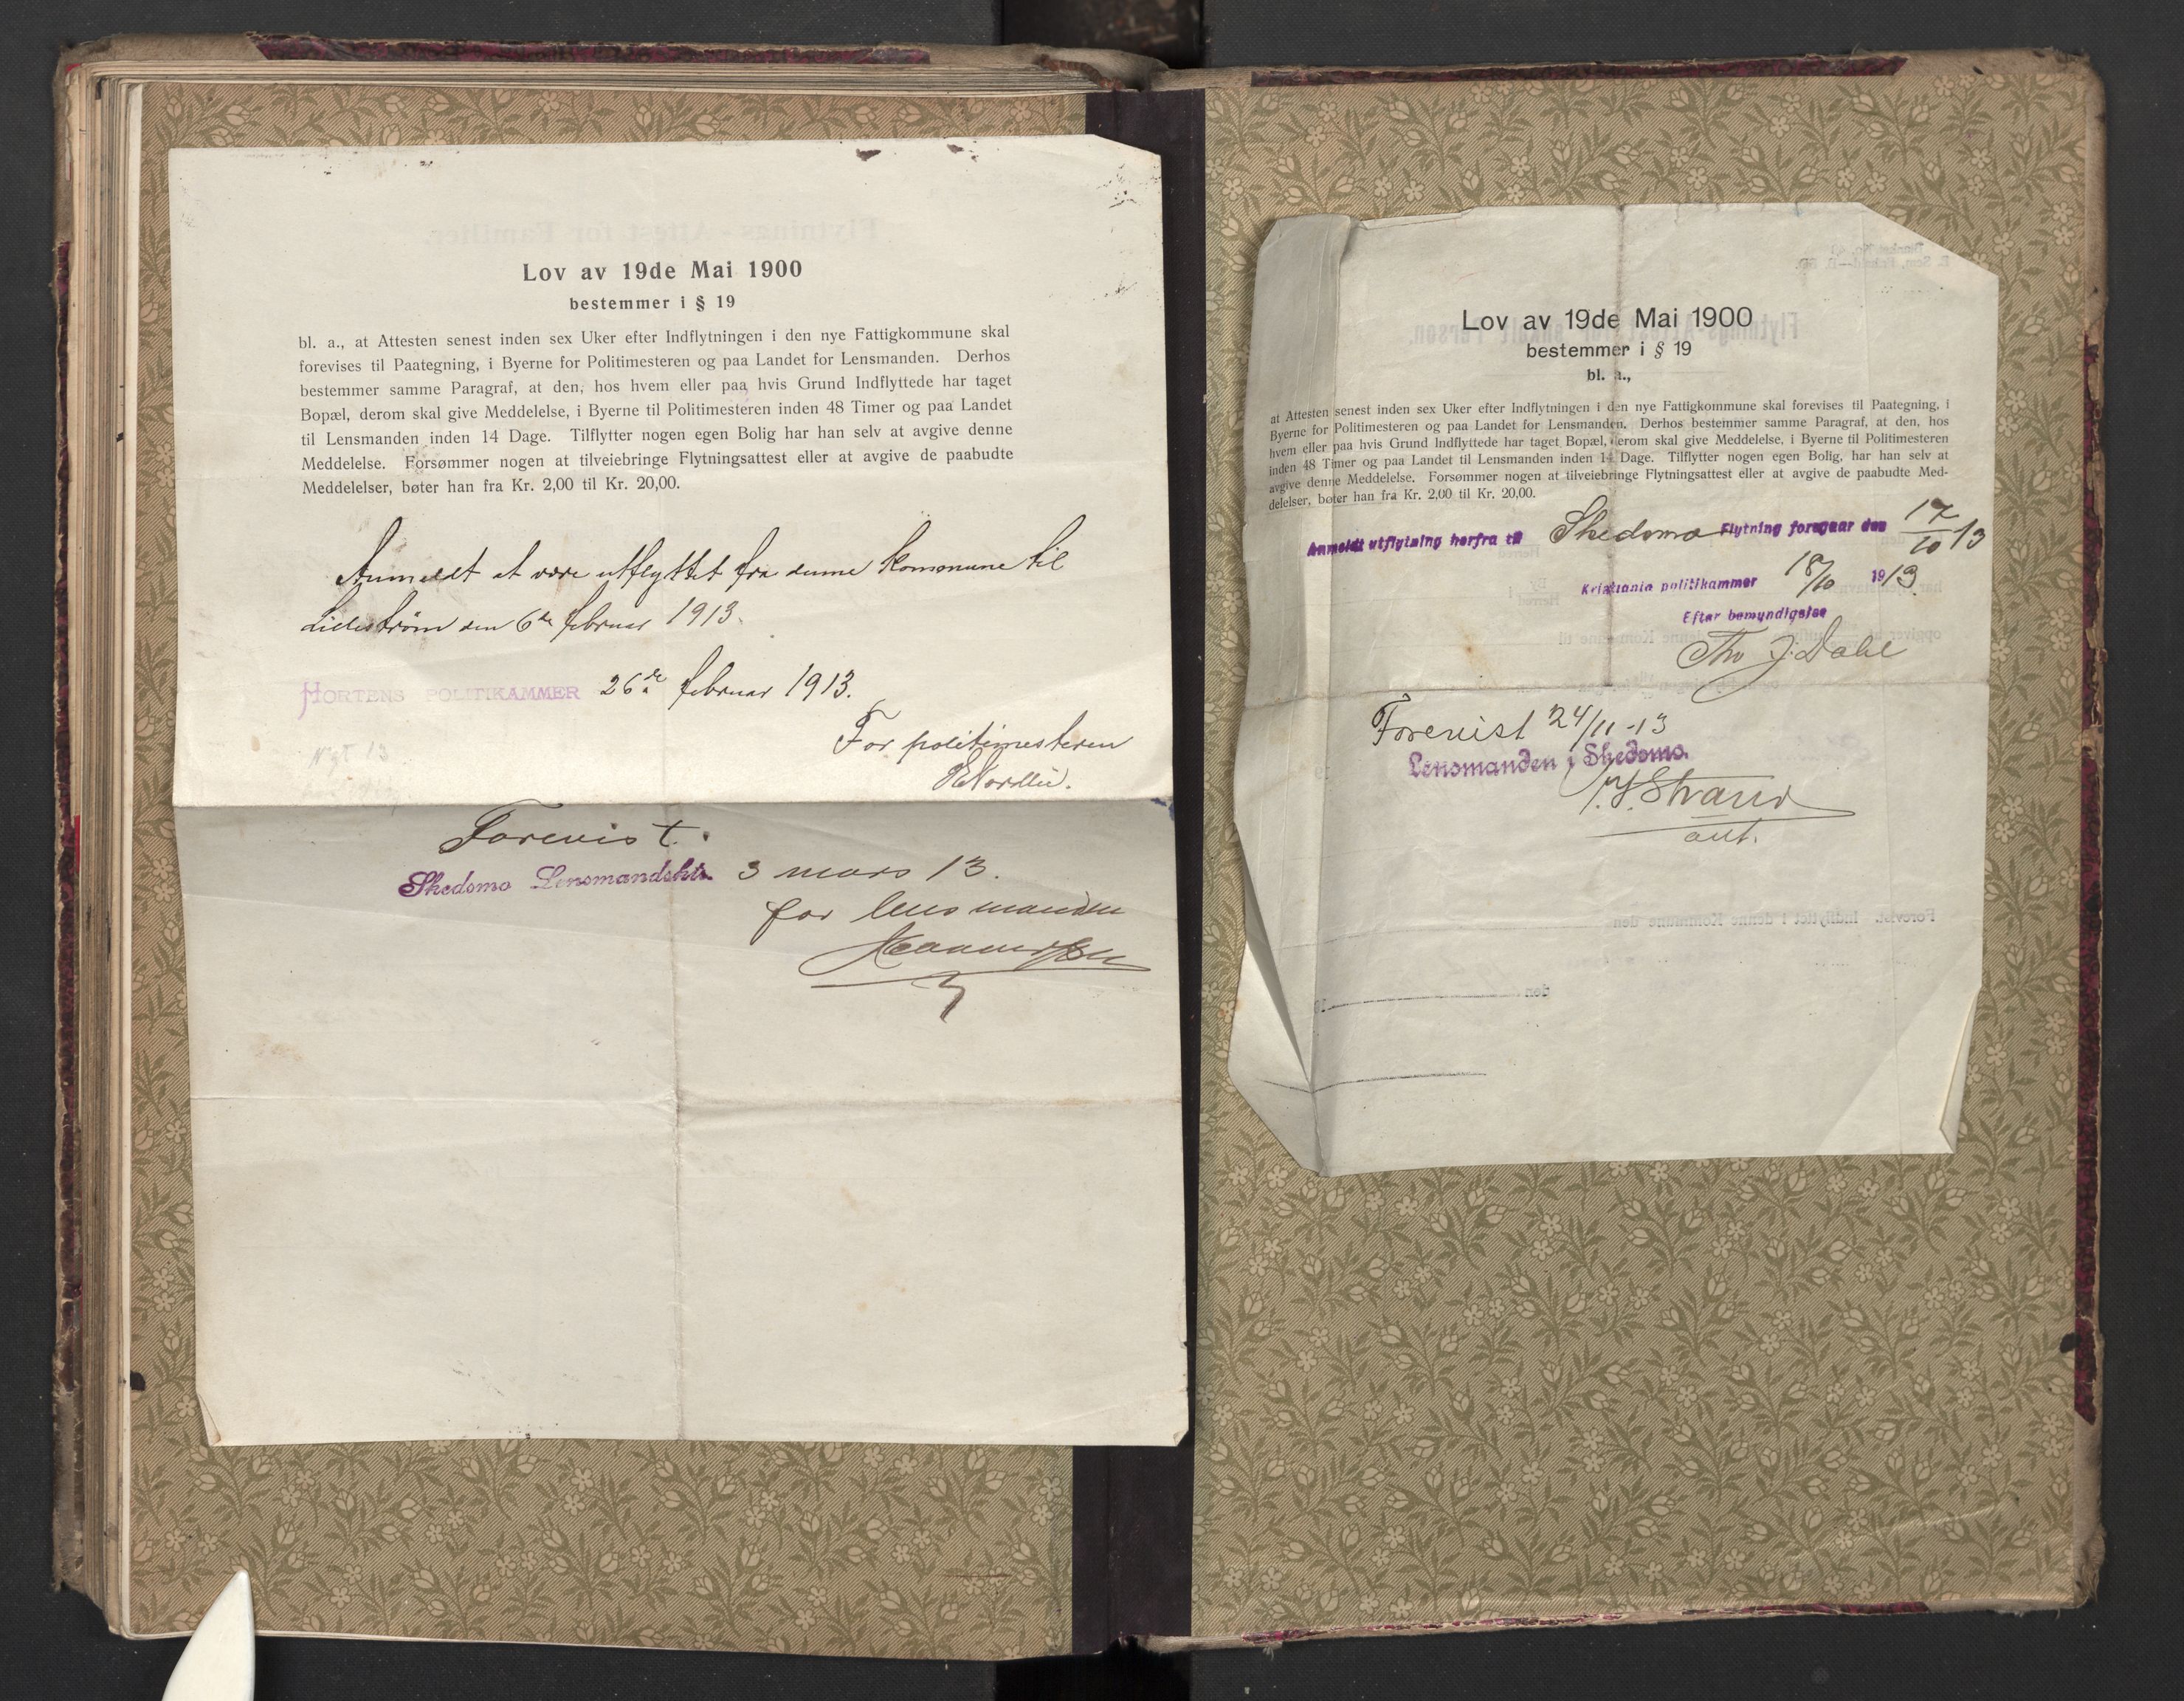 Lov av 19de Mai 1900
bestemmer i § 19
bl. a., at Attesten senest inden sex Uker efter Indflytningen i den nye Fattigkommune skal
forevises til Paategning, i Byerne for Politimesteren og paa Landet for Lensmanden. Derhos
bestemmer samme Paragraf, at den, hos hvem eller paa hvis Grund Indflyttede har taget
Bopæl, derom skal give Meddelelse, i Byerne til Politimesteren inden 48 Timer og paa Landet
til Lensmanden inden 14 Dage. Tilflytter nogen egen Bolig har han selv at avgive denne
Meddelelse. Forsømmer nogen at tilveiebringe Flytningsattest eller at avgive de paabudte
Meddelelser, bøter han fra Kr. 2,00 til Kr. 20,00.
Anmeldt at være utflyttet fra denne kommune til
Lillestrøm den 6te februar 1913.
HORTENS POLITIKAMMER 26de februar 1913.
For politimesteren
Forevist.
Skedsmo Lensmandskt. 3 mars 13.
for lensmanden
Lov av 19de Mai 1900
bestemmer i § 19
bl. a.,
at Attesten senest inden sex Uker efter Indflytningen i den nye Fattigkommune skal forevises til Paategning, i
Byerne for Politimesteren og paa Landet for Lensmanden. Derhos bestemmer samme Paragraf, at den, hos
hvem eller paa hvis Grund Indflyttede har taget Bopæl, derom skal give Meddelelse, i Byerne til Politimesteren
inden 48 Timer og paa Landet til Lensmanden inden 14 Dage. Tilflytter nogen egen Bolig, har han selv at
avgive denne Meddelelse. Forsømmer nogen at tilveiebringe Flytningsattest eller at avgive de paabudte Med-
delelser, bøter han fra Kr. 2,00 til Kr. 20,00.
Anmeldt utflytning herfra til Skedsmo Flytning foregaar den 17/10 13
Kristiania politikammer 18/10 1913
Efter bemyndigelse
Tho J. Dahl
Forevist 24/11-13
Lensmanden i Skedsmo.
Strand